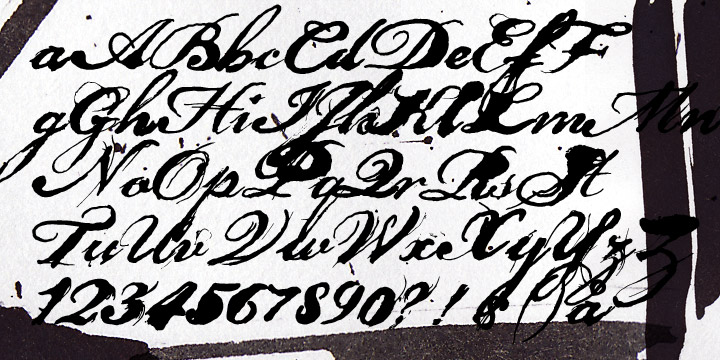 aABbcCdDeEfF
gGhHiIJjkKlLmMn
NoOpPqQrRsSt
TuUvVwWxXyYzZ
1234567890?!&()å